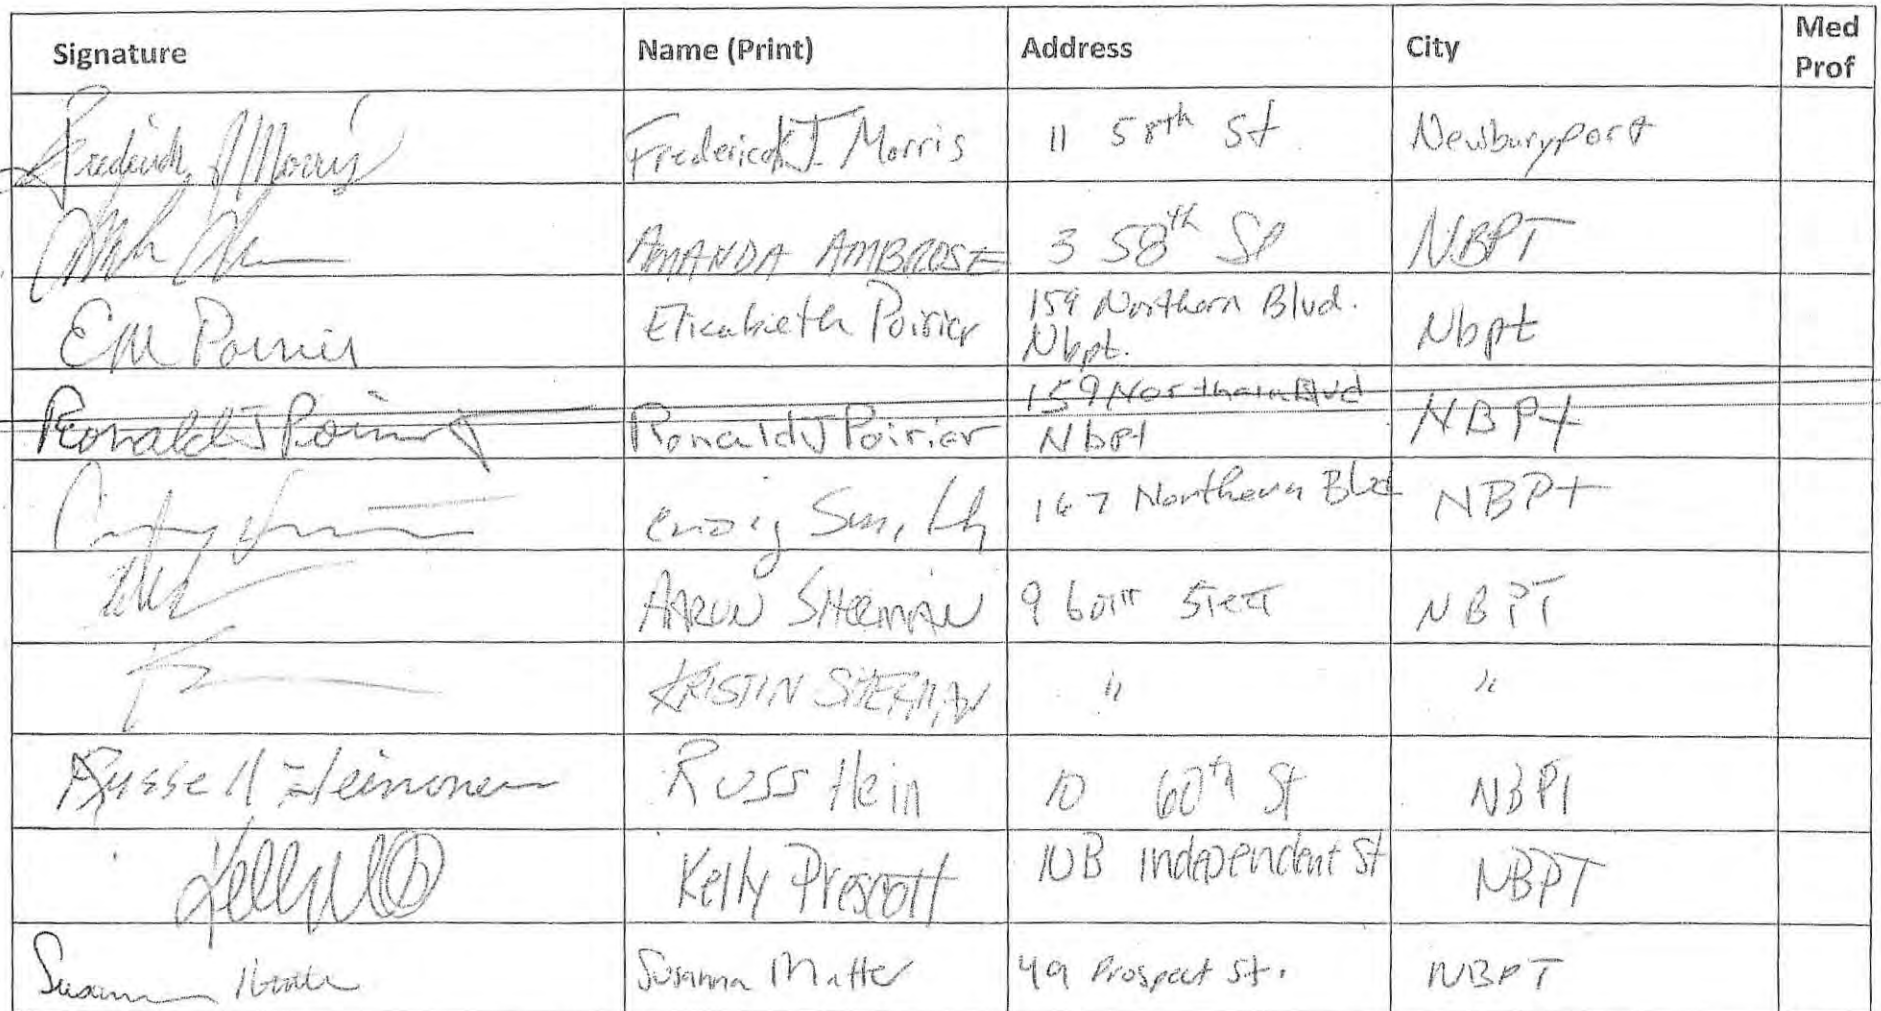 Signature Name (Print) Address City Med Prof
Frederick J Morris Frederick J. Morris 11 58th St Newburyport
AMANDA AMBROSE 3 58th St NBPT
EM Poirier Elizabeth Poirier 159 Northern Blvd. Nbpt. Nbpt
Ronald J Poirier Ronald J Poirier 159 Northern Blvd Nbpt NBPt
Craig Smith 167 Northern Blvd NBPt
AARON SHERMAN 9 60TH Street NBPT
KRISTIN SHERMAN " "
Russell Heinonen Russ Hein 10 60th St NBPT
Kelly Prescott 10B Independent St NBPT
Susanna Susanna Matter 49 Prospect St. NBPT